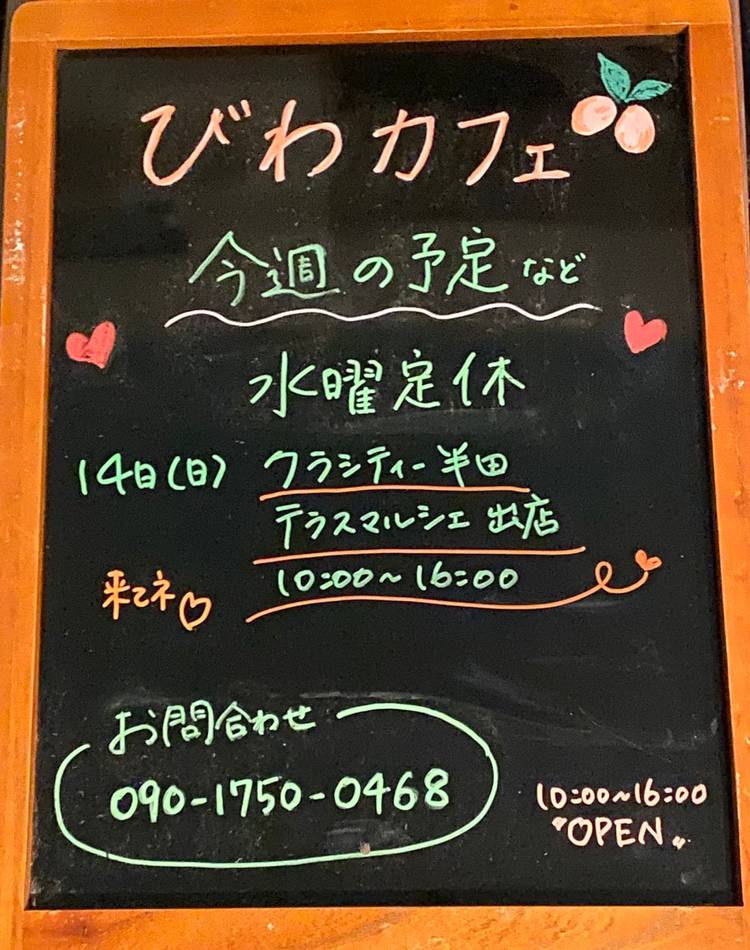 びわカフェ
今週の予定など
水曜定休
14日(日) クラシティー半田
テラスマルシェ 出店
10:00~16:00
来てネ♡
お問合わせ
090-1750-0468
10:00~16:00
"OPEN"